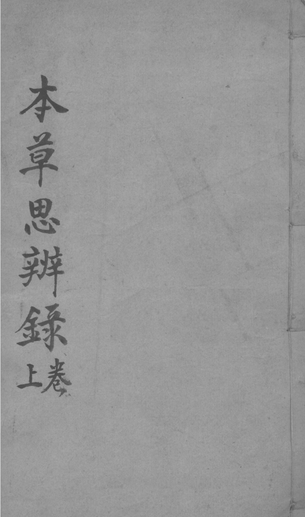 本草思辨錄
上卷